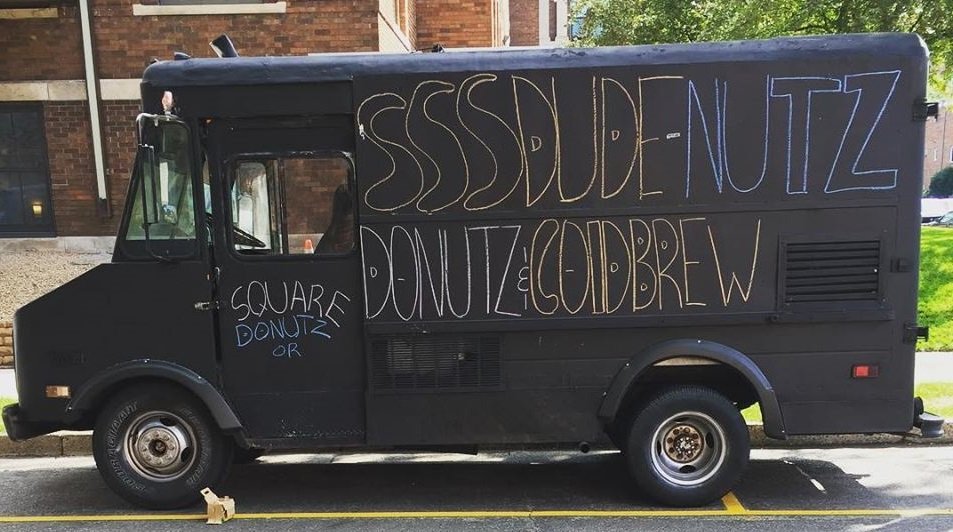 SSSSDUDE-NUTZ
DONUTZ & COLDBREW
SQUARE
DONUTZ
OR